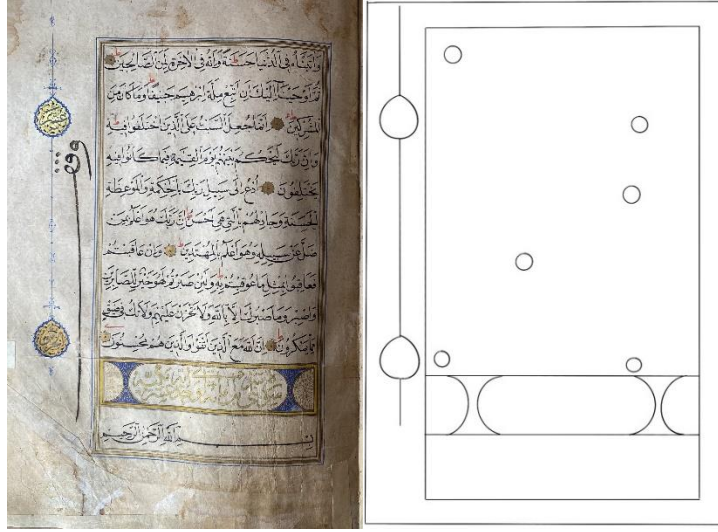 وَاٰتَيْنَاهُ فِي الدُّنْيَا حَسَنَةً وَاِنَّهُ فِي الْاٰخِرَةِ لَمِنَ الصَّالِحِينَ
ثُمَّ اَوْحَيْنَا اِلَيْكَ اَنِ اتَّبِعْ مِلَّةَ اِبْرٰهِيمَ حَنِيفًا وَمَا كَانَ مِنَ
الْمُشْرِكِينَ اِنَّمَا جُعِلَ السَّبْتُ عَلَى الَّذِينَ اخْتَلَفُوا فِيهِ
وَاِنَّ رَبَّكَ لَيَحْكُمُ بَيْنَهُمْ يَوْمَ الْقِيٰمَةِ فِيمَا كَانُوا فِيهِ
يَخْتَلِفُونَ اُدْعُ اِلٰى سَبِيلِ رَبِّكَ بِالْحِكْمَةِ وَالْمَوْعِظَةِ
الْحَسَنَةِ وَجَادِلْهُمْ بِالَّتِي هِيَ اَحْسَنُ اِنَّ رَبَّكَ هُوَ اَعْلَمُ بِمَنْ
ضَلَّ عَنْ سَبِيلِهِ وَهُوَ اَعْلَمُ بِالْمُهْتَدِينَ وَاِنْ عَاقَبْتُمْ
فَعَاقِبُوا بِمِثْلِ مَا عُوقِبْتُمْ بِهِ وَلَئِنْ صَبَرْتُمْ لَهُوَ خَيْرٌ لِلصَّابِرِينَ
وَاصْبِرْ وَمَا صَبْرُكَ اِلَّا بِاللّٰهِ وَلَا تَحْزَنْ عَلَيْهِمْ وَلَا تَكُ فِي ضَيْقٍ
مِمَّا يَمْكُرُونَ اِنَّ اللّٰهَ مَعَ الَّذِينَ اتَّقَوْا وَالَّذِينَ هُمْ مُحْسِنُونَ
بِسْمِ اللّٰهِ الرَّحْمٰنِ الرَّحِيمِ
وقف